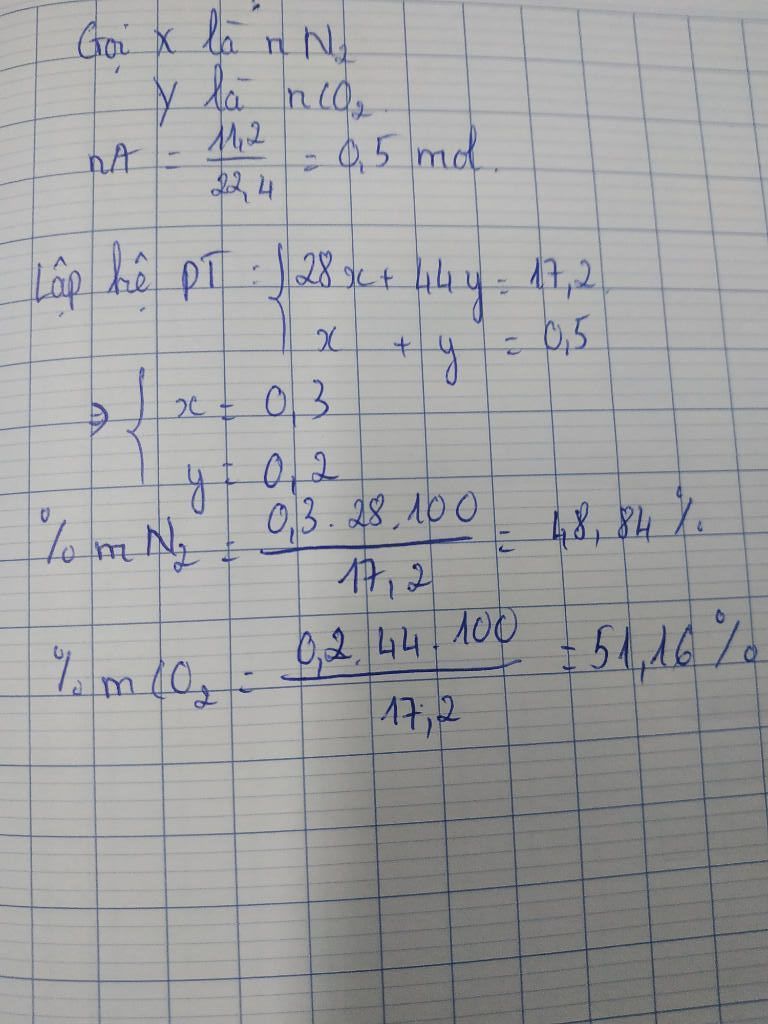 Gọi x là n N₂
y là nCO₂.
nA = 11,2 / 22,4 = 0,5 mol.
Lập hệ PT : { 28x + 44y = 17,2
x + y = 0,5
⇒ { x = 0,3
y = 0,2
% m N₂ = 0,3 . 28 . 100 / 17,2 = 48,84 %
% m CO₂ = 0,2 . 44 . 100 / 17,2 = 51,16 %